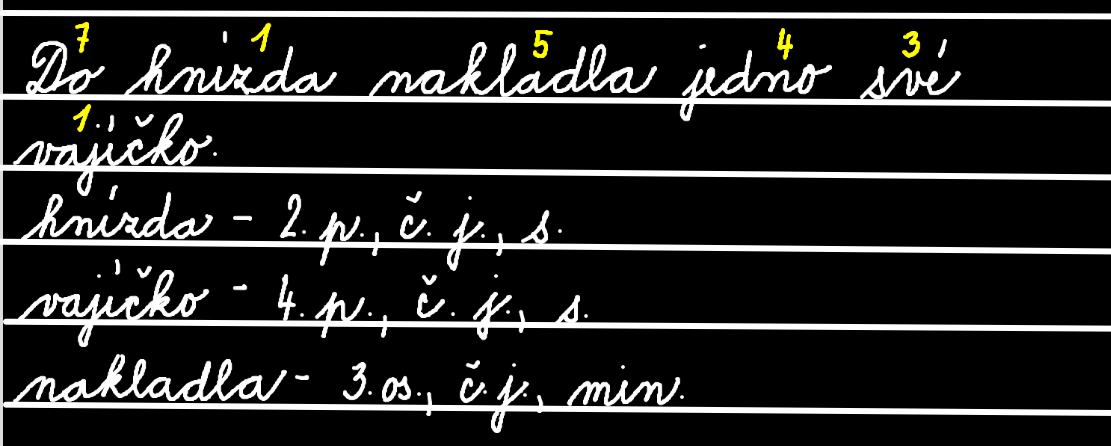 7 1 5 4 3
Do hnízda nakladla jedno své
1
vajíčko.
hnízda - 2. p., č. j., s.
vajíčko - 4. p., č. j., s.
nakladla - 3. os., č. j., min.